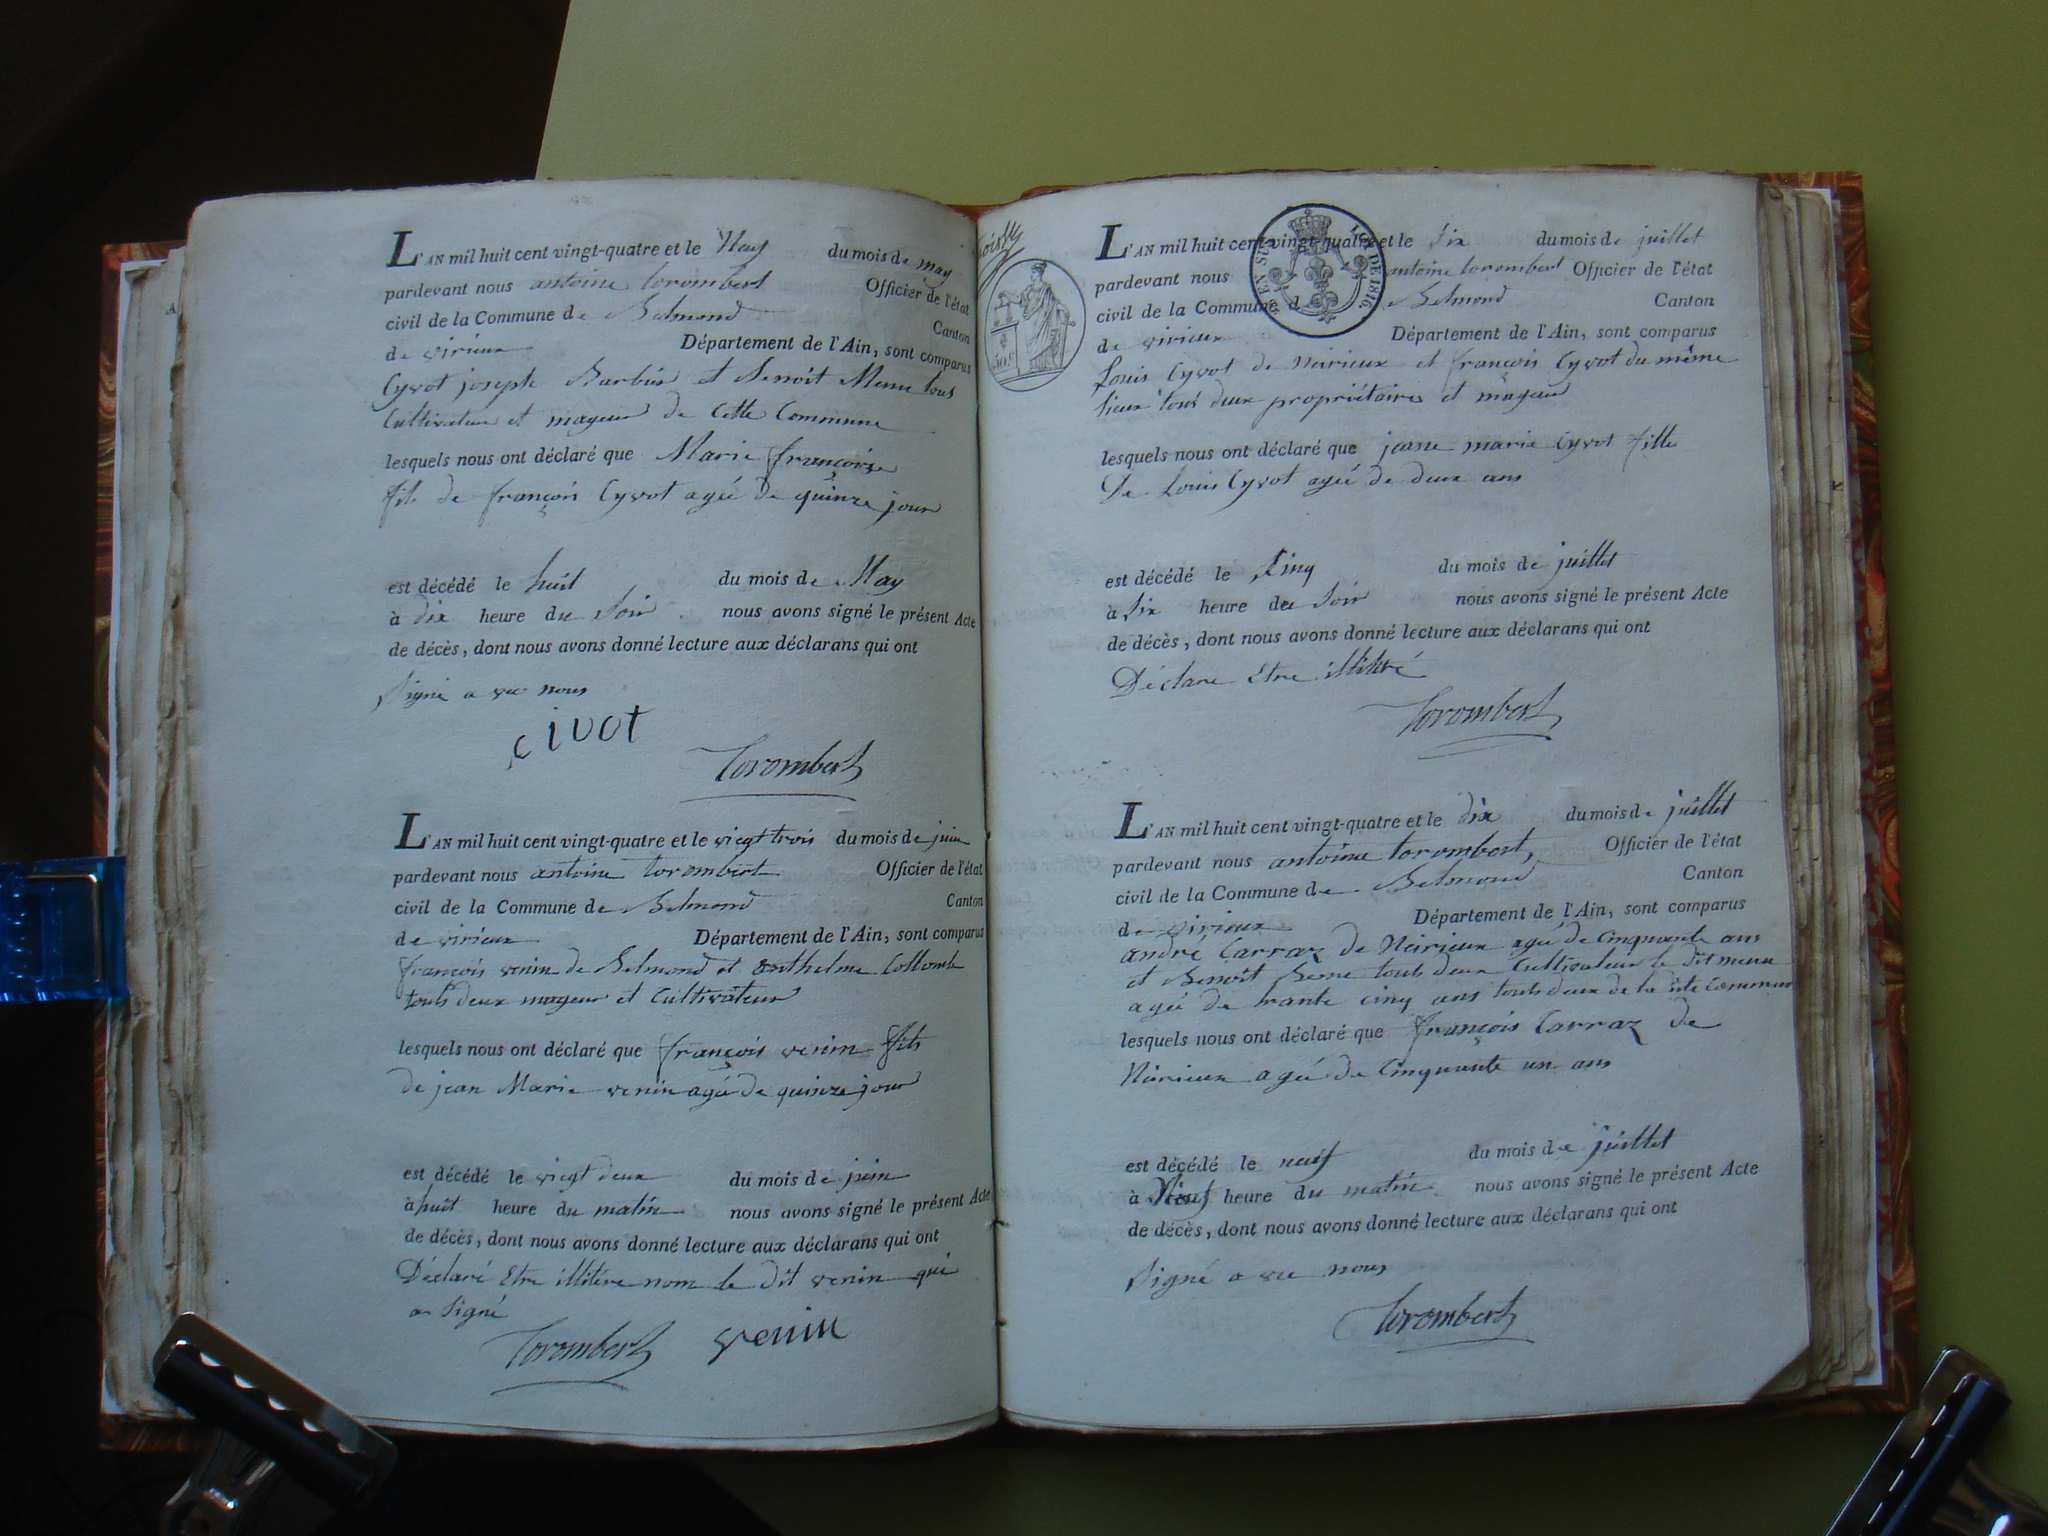 L'AN mil huit cent vingt-quatre et le Neuf du mois de may
pardevant nous antoine torombert Officier de l'état
civil de la Commune de Belmond Canton
de virieux Département de l'Ain, sont comparus
Cyvot joseph Barbier et Benoit Mem tous
Cultivateur et mageur de Cette Commune
lesquels nous ont déclaré que Marie françoise
fils de françois Cyvot agéé de quinze jour
est décédé le huit du mois de May
à dix heure du Soir nous avons signé le présent Acte
de décès, dont nous avons donné lecture aux déclarans qui ont
Signé a vec nous
civot
Torombert
L'AN mil huit cent vingt-quatre et le viegt trois du mois de juin
pardevant nous antoine torombert Officier de l'état
civil de la Commune de Belmond Canton
de virieux Département de l'Ain, sont comparus
françois venin de Belmond et anthelme Collomb
touts deux mageur et Cultivateur
lesquels nous ont déclaré que françois venin fils
de jean Marie venin agéé de quinze jour
est décédé le viegt deux du mois de juin
à huit heure du matin nous avons signé le présent Acte
de décès, dont nous avons donné lecture aux déclarans qui ont
Déclaré Etre illitére nom le dit venin qui
a Signé
Torombert venin
L'AN mil huit cent vingt-quatre et le Six du mois de juillet
pardevant nous antoine torombert Officier de l'état
civil de la Commune de Belmond Canton
de virieux Département de l'Ain, sont comparus
Louis Cyvot de Neirieux et françois Cyvot du même
lieux tous deux propriétaire et mageur
lesquels nous ont déclaré que jeane marie Cyvot fille
De Louis Cyvot agéé de deux ans
est décédé le Cinq du mois de juillet
à Six heure du Soir nous avons signé le présent Acte
de décès, dont nous avons donné lecture aux déclarans qui ont
Déclare Etre illitéré
Torombert
L'AN mil huit cent vingt-quatre et le dix du mois de juillet
pardevant nous antoine torombert, Officier de l'état
civil de la Commune de Belmond Canton
de virieux Département de l'Ain, sont comparus
andré Carraz de Neirieux agéé de Cinquante ans
et Benoit touts deux Cultivateur le dit
agéé de trante cinq ans touts deux de la Commun
lesquels nous ont déclaré que françois Carraz de
Neirieux agéé de Cinquante un ans
est décédé le neuf du mois de juillet
à Neuf heure du matin nous avons signé le présent Acte
de décès, dont nous avons donné lecture aux déclarans qui ont
Signé a vec nous
Torombert
LOI DE 1816.